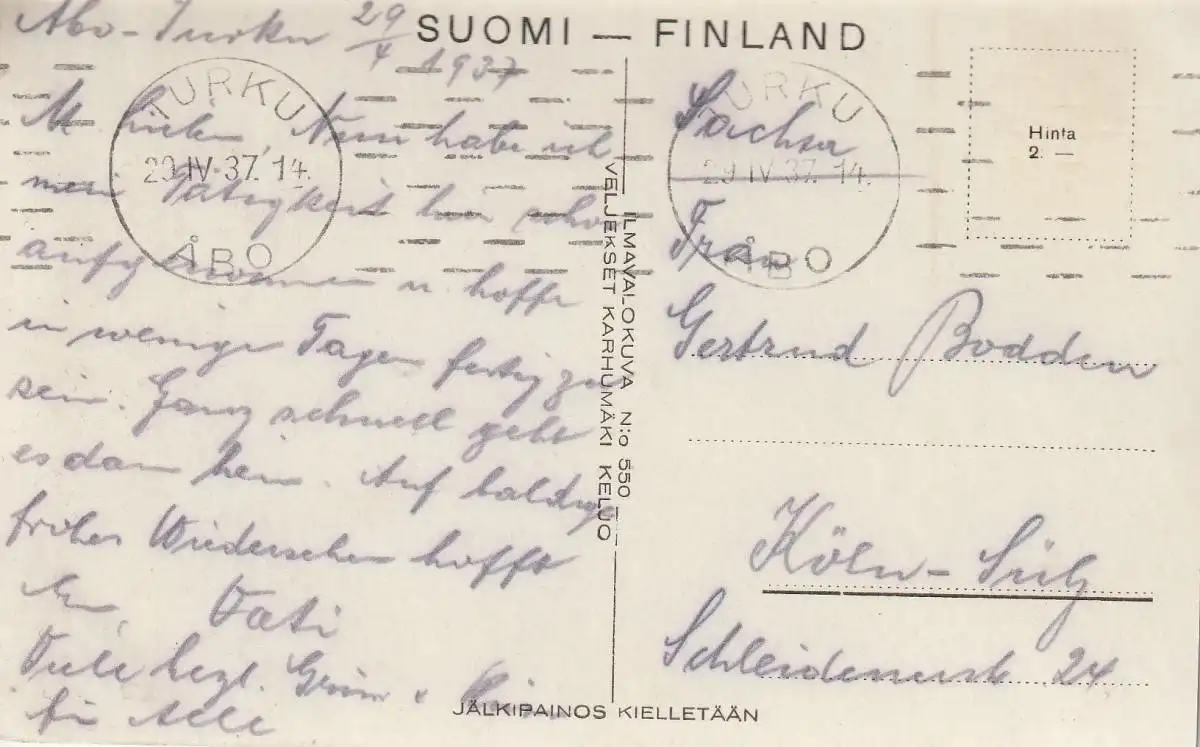 Abo-Turku 29/4 1937
SUOMI — FINLAND
TURKU
29.IV.37. 14.
ÅBO
M. Lieben, Nun habe ich
meine Tätigkeit hier schon
aufgenommen u hoffe
in wenige Tagen fertig zu
sein. Ganz schnell geht
es dann heim. Auf baldiges
frohes Wiedersehen hofft
Eu. Vati
Viele herzl. Grüsse &
für alle
ILMAVALOKUVA N:o 550
VELJEKSET KARHUMÄKI KELJO
TURKU
29.IV.37. 14.
ÅBO
Hinta
2. —
Frau
Gertrud Bodden
Köln-Sülz
Schleidenerstr. 24
JÄLKIPAINOS KIELLETÄÄN